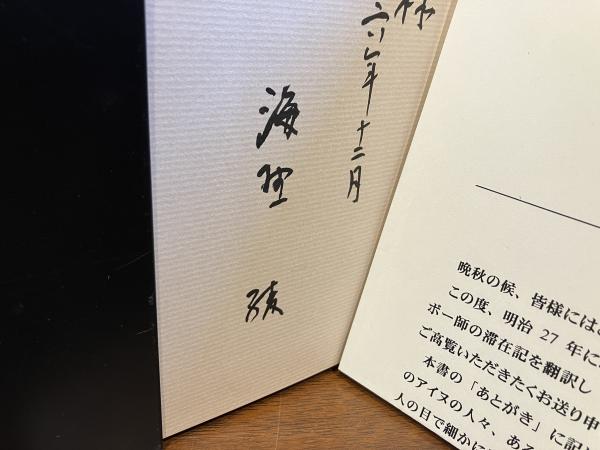 様
年十二月
海野
晩秋の候、皆様には
この度、明治 27 年に
ボー師の滞在記を翻訳し
ご高覧いただきたくお送り申
本書の「あとがき」に記
のアイヌの人々、ある
人の目で細かに